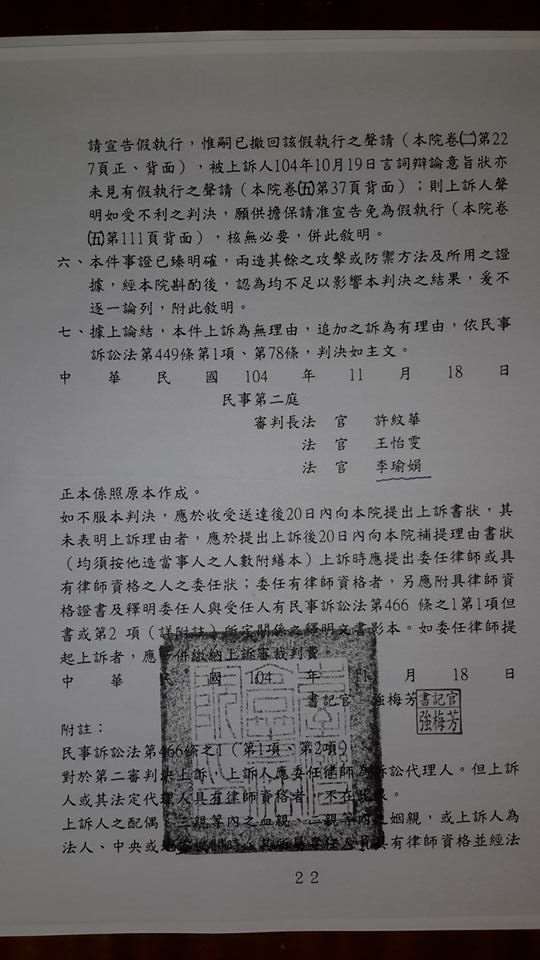 請宣告假執行，惟嗣已撤回該假執行之聲請（本院卷㈡第22
7頁正、背面），被上訴人104年10月19日言詞辯論意旨狀亦
未見有假執行之聲請（本院卷㈤第37頁背面）；則上訴人聲
明如受不利之判決，願供擔保請准宣告免為假執行（本院卷
㈤第111頁背面），核無必要，併此敘明。
六、本件事證已臻明確，兩造其餘之攻擊或防禦方法及所用之證
據，經本院斟酌後，認為均不足以影響本判決之結果，爰不
逐一論列，附此敘明。
七、據上論結，本件上訴為無理由，追加之訴為有理由，依民事
訴訟法第449條第1項、第78條，判決如主文。
中 華 民 國 104 年 11 月 18 日
民事第二庭
審判長法 官 許紋華
法 官 王怡雯
法 官 李瑜娟
正本係照原本作成。
如不服本判決，應於收受送達後20日內向本院提出上訴書狀，其
未表明上訴理由者，應於提出上訴後20日內向本院補提理由書狀
（均須按他造當事人之人數附繕本）上訴時應提出委任律師或具
有律師資格之人之委任狀；委任有律師資格者，另應附具律師資
格證書及釋明委任人與受任人有民事訴訟法第466 條之1第1項但
書或第2 項（詳附註）所定關係之釋明文書影本。如委任律師提
起上訴者，應一併繳納上訴審裁判費。
中 華 國 104 年 11 月 18 日
書記官 強梅芳
書記官
強梅芳
附註：
民事訴訟法第466條之1（第1項、第2項）
對於第二審判決上訴，上訴人應委任律師為訴訟代理人。但上訴
人或其法定代理人具有律師資格者，不在此限。
上訴人之配偶、三親等內之血親、二親等內之姻親，或上訴人為
法人、中央或地方機關時，其所屬專任人員具有律師資格並經法
22